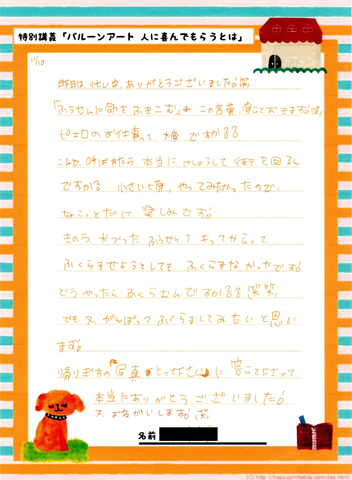 特別講義「バルーンアート 人に喜んでもらうとは」
11/10
昨日は忙しい中、ありがとうございました！笑
「ふうせんに命をふきこむ」 この言葉、覚えておきます！笑
ピエロのお仕事って、大変ですか？？
こんど、呼ばれたら、本当にけっこうして街を回るん
ですか？ 小さい頃、やってみたかったので、
ちょこっとだけ楽しみです。
きのう、犬つくった ふうせん
ふくらませようとしても、ふくらまなかったです。
どうやったら、ふくらむんですか？？笑笑
でも、又、がんばってふくらましてみたいと思い
ます。
帰りぎわの「写真とってください」に答えて下さって
本当にありがとうございました！
又、おねがいします！笑
名前
(C) http://happyprintable.com/day.html